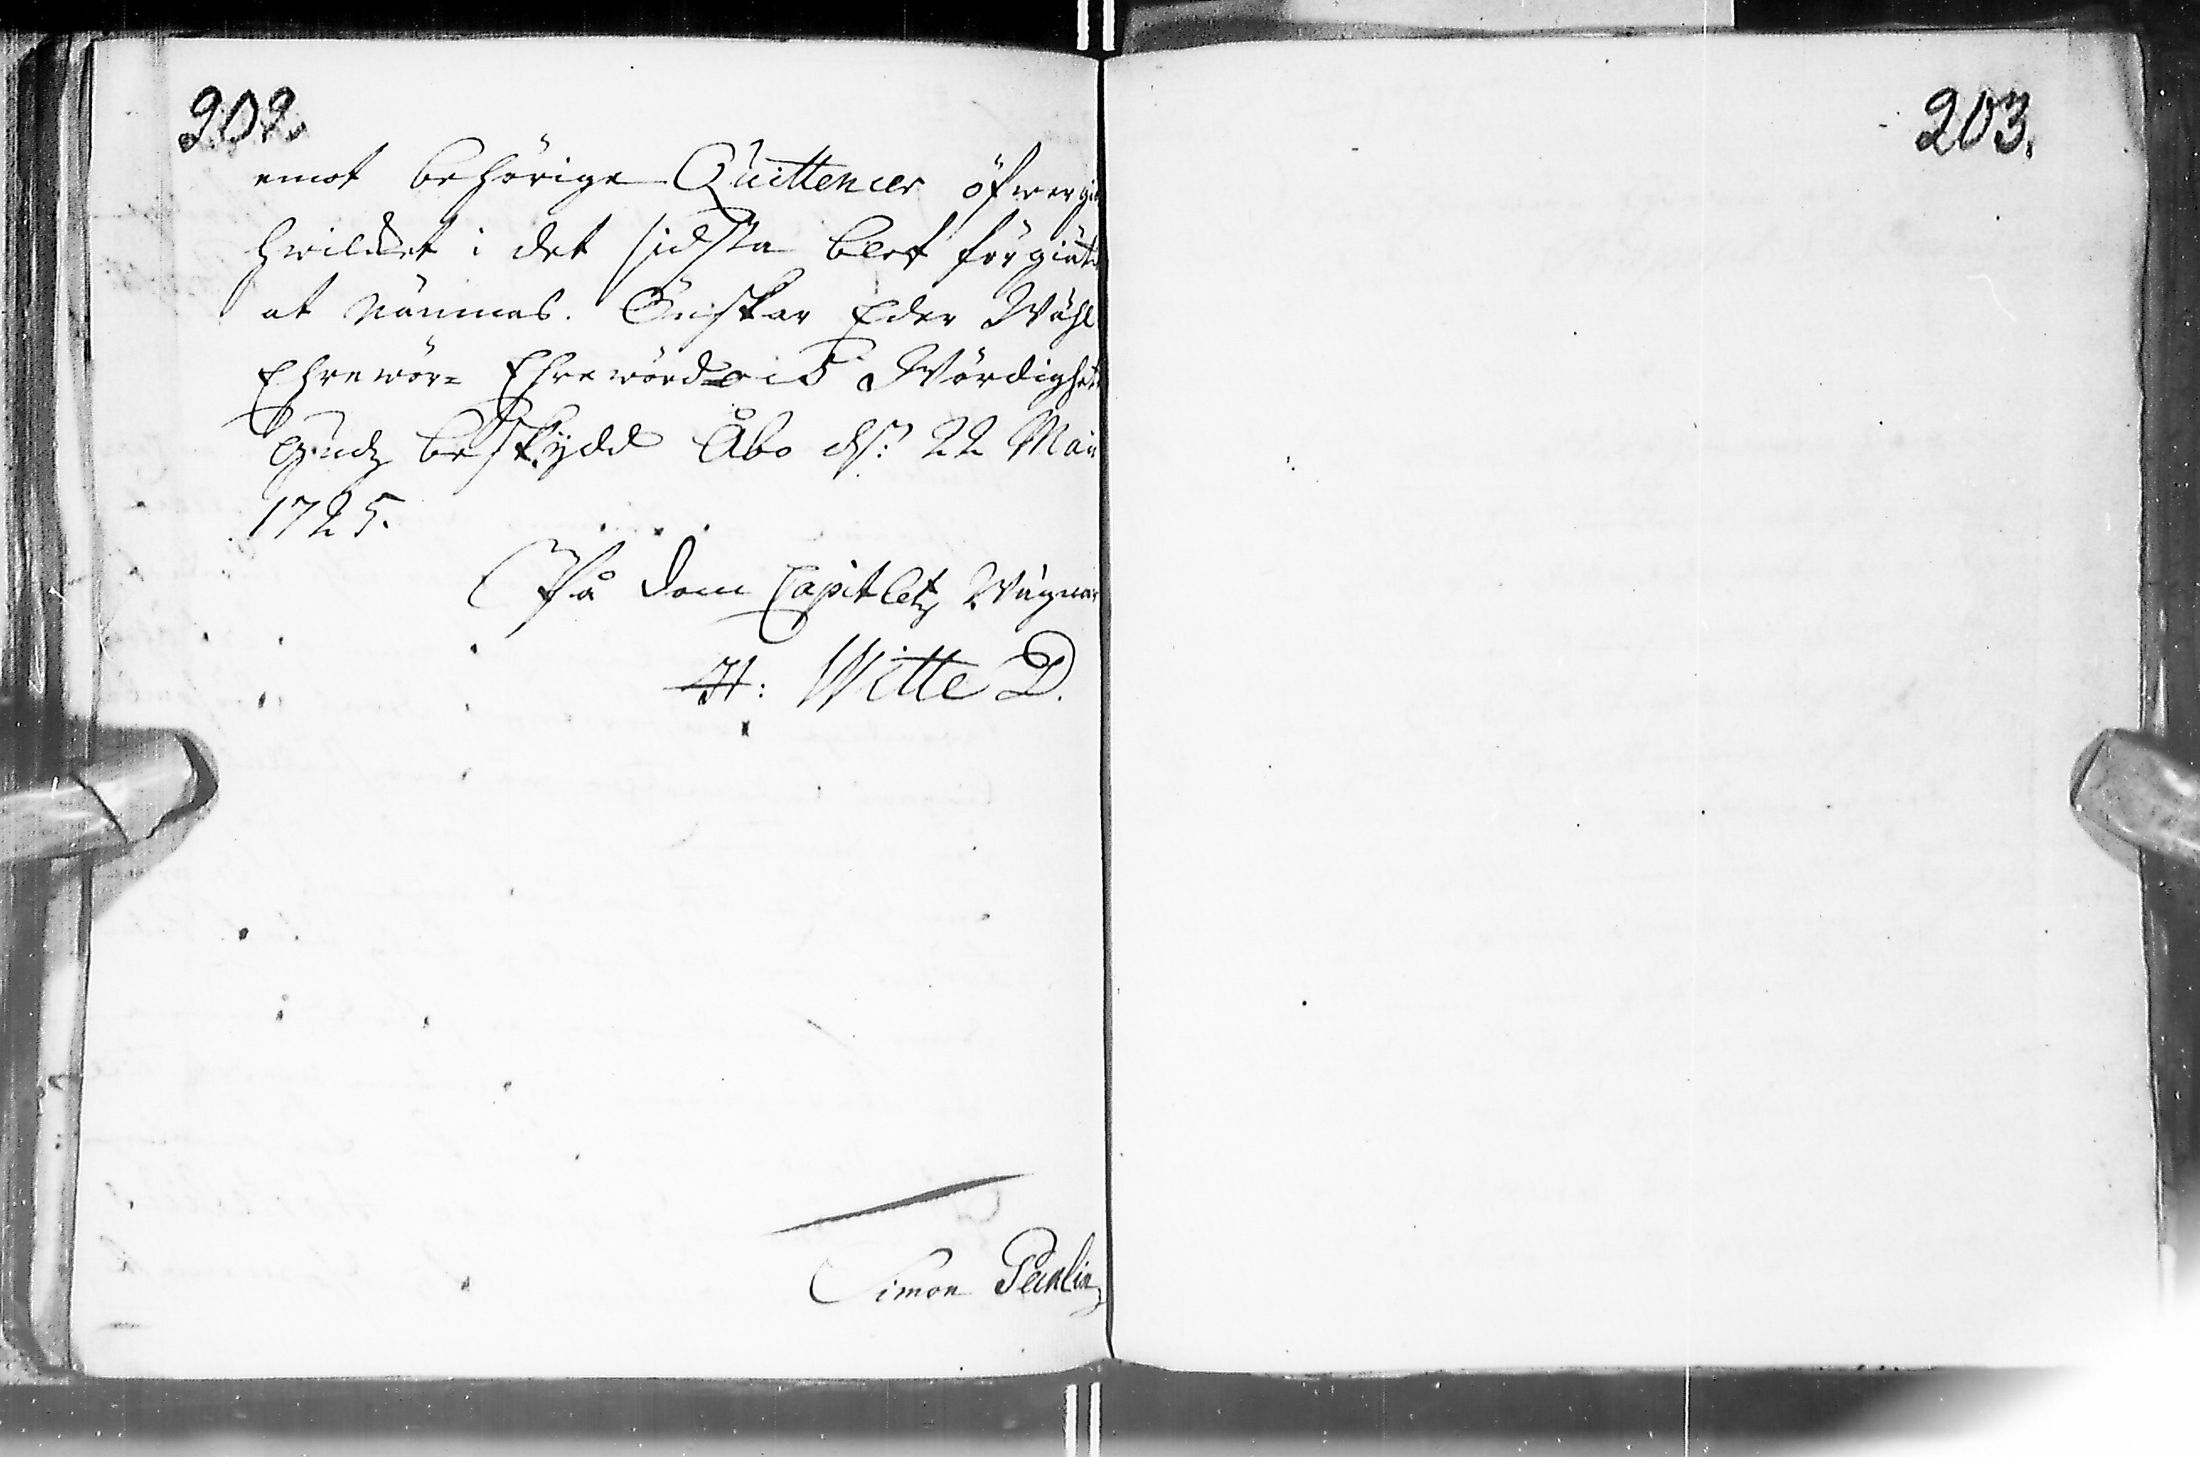 202.
203.
emot behörige Quittencer öfwergi
hwilcket i det sidsta blef förgiät
at nämnas. Önskar Eder Wähl
Ehrewör= Ehrewörd och Wördighet
Gudz beskÿdd Åbo d: 22 Maii
1725.
På Dom Capitletz Wägnar
H: Witte D.
Simon Paulin